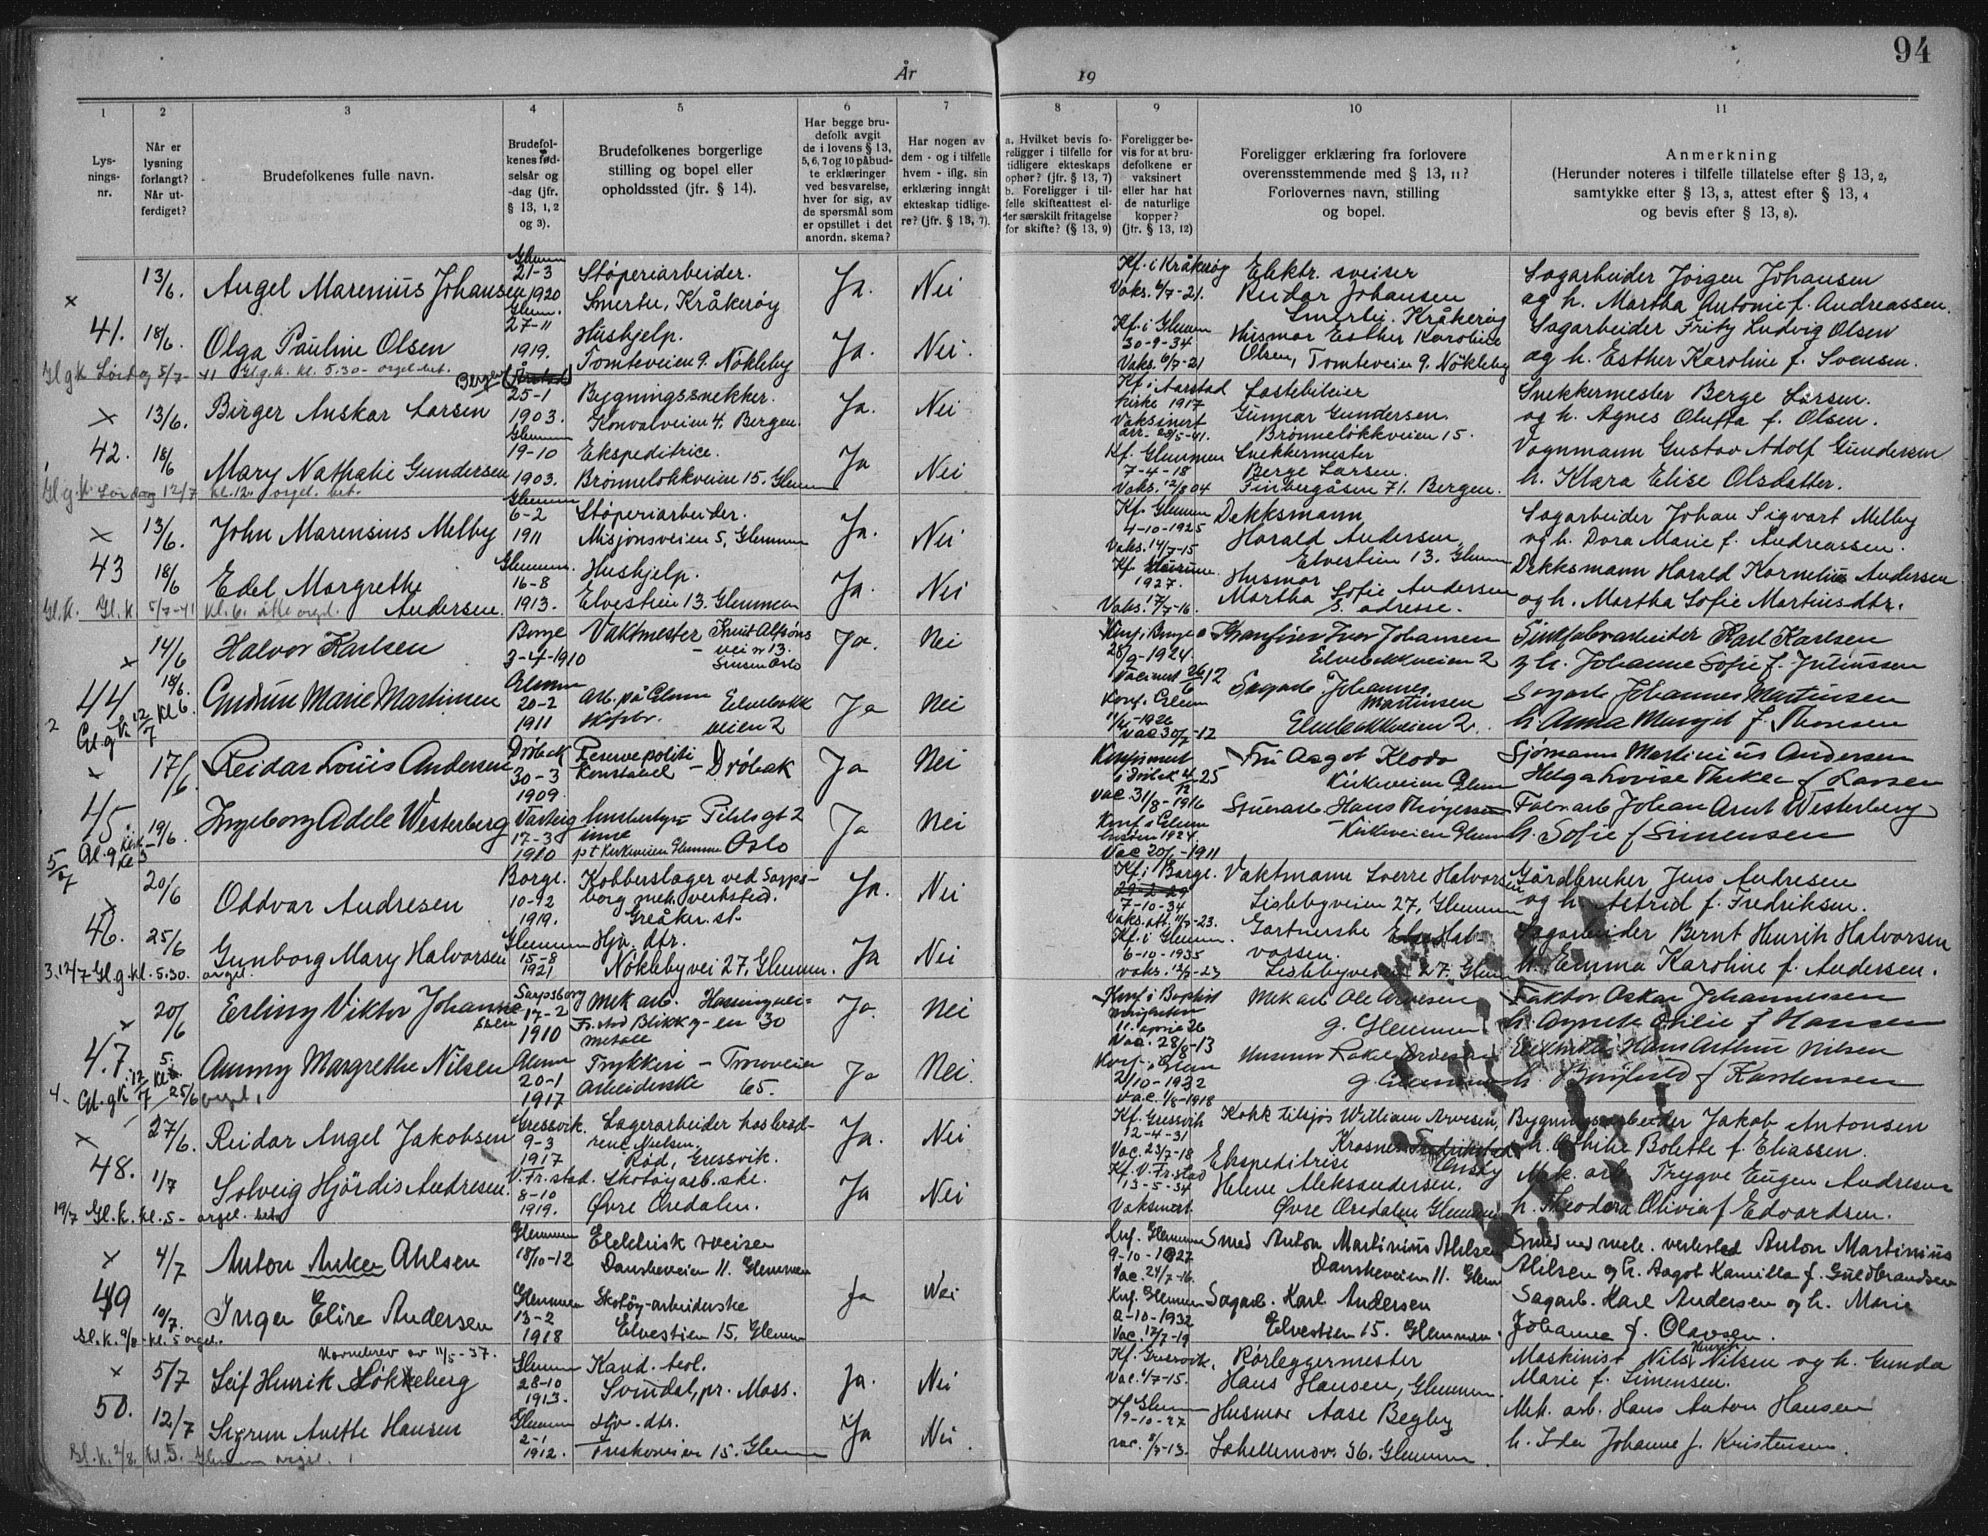 94
År
19
1
2
3
4
5
6
7
8
9
10
11
Lys-
nings-
nr.
Når er
lysning
forlangt?
Når ut-
ferdiget?
Brudefolkenes fulle navn.
Brudefol-
kenes fød-
selsår og
-dag (jfr.
§ 13, 1, 2
og 3).
Brudefolkenes borgerlige
stilling og bopel eller
opholdssted (jfr. § 14).
Har begge bru-
defolk avgit
de i lovens § 13,
5, 6, 7 og 10 påbud-
te erklæringer
ved besvarelse,
hver for sig, av
de spørsmål som
er opstillet i det
anordn. skema?
Har nogen av
dem - og i tilfelle
hvem - iflg. sin
erklæring inngåt
ekteskap tidlige-
re? (jfr. § 13, 7).
a. Hvilket bevis fo-
religger i tilfelle for
tidligere ekteskaps
ophør? (§ 13, 7)
b. Foreligger i til-
felle skifteattest el-
ler særskilt fritagelse
for skifte? (§ 13, 9)
Foreligger be-
vis for at bru-
defolkene er
vaksinert
eller har hat
de naturlige
kopper?
(jfr. § 13, 12)
Foreligger erklæring fra forlovere
overensstemmende med § 13, 11?
Forlovernes navn, stilling
og bopel.
Anmerkning
(Herunder noteres i tilfelle tillatelse efter § 13, 2,
samtykke efter § 13, 3, attest efter § 13, 4
og bevis efter § 13, 8).
x 13/6. Angel Marenius Johansen Glemm 21-3 1920 Støperiarbeider. Smertu, Kråkerøy Ja. Nei Kf. i Kråkerøy Vaks. 6/7-21. Elektr. sveiser Reidar Johansen Smertu. Kråkerøy Sagarbeider Jörgen Johansen og h. Martha Antonie f. Andreassen.
41. 18/6. Olga Pauline Olsen Glem. 27-11 1919. Hushjelp. Tomteveien 9. Nökleby Ja. Nei. Kf. i Glemm 30-9-34 Vaks. 6/7-21 Husmor Esther Karoline Olsen, Tomteveien 9. Nökleby Sagarbeider Fritz Ludvig Olsen og h. Esther Karoline f. Svensen.
Gl. g. k. Lørdag 5/7-41 Gl. g. k. kl. 5.30 - orgel bet.
x 13/6. Birger Anskar Larsen Bergen 25-1 1903. Bygningssnekker. Konvalveien 4. Bergen. Ja. Nei Kf. i Aarstad kirke 1917 Vaksinert arr. 28/5-41. Lastebileier Gunnar Gundersen. Brönneløkkveien 15. Snekkermester Berge Larsen. og h. Agnes Oluffa f. Olsen.
42. 18/6 Mary Nathalie Gundersen Glemm 19-10 1903. Ekspeditrice. Brönneløkkveien 15. Glemm Ja Nei Kf. Glemmen 7-4-18 Vaks. 12/8 04 Snekkermester Berge Larsen. Finbergåsen 71. Bergen. Vognmann Gustav Adolf Gundersen h. Klara Elise Olsdatter.
Gl. g. k. Lördag 12/7 kl. 12. orgel. bet.
x 13/6. John Marensius Melby Glemm 6-2 1911 Støperiarbeider. Misjonsveien 5, Glemmen Ja. Nei Kf. Glemm 4-10-1925 Vaks. 14/7-15 Dekksmann Harald Andersen, Elvestien 13. Glemm Sagarbeider Johan Sigvart Melby og h. Dora Marie f. Andreassen.
43 18/6 Edel Margrethe Andersen. Glemmen. 16-8 1913. Hushjelp. Elvestien 13. Glemmen Ja. Nei Kf Glemm 1927. Vaks. 17/7-16. Husmor Martha Sofie Andersen s. adresse. Dekksmann Harald Kornelius Andersen og h. Martha Sofie Martiusdtr.
Gl. K. Gl. K. 5/7-41 kl. 6. ikke orgel.
x 14/6 Halvor Karlsen Borge 3-4-1910 Vaktmester Knut Alfsøns vei nr 13. Sinsen Oslo Ja. Nei Konf. i Borge 28/9-1924. Johansen Elvebakkveien 2 Karl Karlsen g h. Johanne Sofie f. Juliussen
44 18/6. Gudrun Marie Martinsen Glemm 20-2 1911 Arb. på Glemm skofabr. Elvebakkveien 2 Ja Nei Konf. Glemm 1926 Vac 30/7-12 Sagarb Johannes Martinsen Elvebakkveien 2. Sagarb Johannes Martinsen h. Anna Margit f. Thoresen
2 Gl. g. K. 12/7 Kl 6.
x 17/6 Reidar Louis Andersen Drøbak 30-3 1909. Reservepoliti konstabel - Drøbak Ja Nei Konfirmert i Drøbak 4/12 25 Vac. 31/8-1916 Fru Aagot Klodo Kirkeveien Glem Sjømann Martinius Andersen Helga Lovise Thekla f Larsen
45 19/6. Ingeborg Adele Westerberg Varteig 17-3 1910 Pilestgt 2 Oslo p t Kirkeveien Glemm Ja Nei Konf i Glem 1924. Vac 20/7-1911 Stuerarb Hans Thøgersen - Kirkeveien Glemm Fabr arb Johan Arnt Westerberg h. Sofie f Simensen
5/7 Gl. g Kirk Kl 3
x 20/6 Oddvar Andresen Borge. 10-92 1919. Kobberslager ved Sarpsborg mek verksted. Greåker st. Ja. Nei Kf. i Borge. 7-10-34 Vaks. att. 11/9-23. Vaktmann Sverre Halvorsen Lislebyveien 27, Glemmen Gårdbruker Jens Andresen og h. Astrid f. Fredriksen.
46. 25/6 Gunborg Mary Halvorsen Glemmen 15-8 1921 Hjv. dtr. Nöklebyvei 27, Glemmen. Ja Nei Kf. i Glemm. 6-10-1935 vaks. 12/9-23 Gartnerske Else Halvorsen. Lislebyveien 27. Glemm Sagarbeider Bernt Henrik Halvorsen h. Emma Karoline f. Andersen.
3. 12/7 Gl. g. kl. 5.30. orgel.
x 20/6 Erling Viktor Johannessen Sarpsborg 17-2 1910 Mek arb. Haugvei- Fr. stad Blikk g-en 30 Metall Ja. Nei Konf i Baptist menigheten 11. april 26 Vac. 28/8-13 Mek arb Ole Arvesen g. Glemmen Faktor Oskar Johannessen h. Agnete Otilie f Hansen
47. Aummy Margrethe Nilsen Glemm 20-1 1917 Trykkeri - Trosoveien arbeiderske 65. Ja Nei. Konf. i Glem 2/10-1932 Vac. 1/8-1918 g Glemmen Hans Arthur Nilsen h. Borghild f Karstensen
4. Gl. g K 12/7 25/6 orgel.
x 27/6. Reidar Angel Jakobsen Gressvik. 9-3 1917 Lagerarbeider hos brødrene Nielsen. Rød, Gressvik. Ja. Nei Kf. Gressvik 12-4-31 Vac. 23/7-18 Kokk tilsjøs William Arvesen, Krosnes Fredrikstad Onsøy Bygningsarbeider Jakob Antonsen h. Othilie Bolette f. Eliassen.
48. 1/7 Solveig Hjördis Andresen V. Fr.stad. 8-10 1919. Skotøyarb.ske. Øvre Oredalen. Ja Nei Kf. V. Fr.stad 13-5-34 Vaksinert. Ekspeditrise Helene Aleksandersen. Øvre Oredalen Glemmen Mek. arb Trygve Eugen Andresen h. Theodora Olivia f Edvardsen.
19/7 Gl. K. kl. 5 - orgel. bet
x 4/7 Anton Anker Ahlsen Glemmen 18/10-12 Elektrisk sveiser Danskeveien 11. Glemmen Knf. Glemmen 9-10-1927 Vac. 24/7-16. Smed Anton Martinius Ahlsen Danskeveien 11. Glem Smed ved mek. verksted Anton Martinius Ahlsen og h. Aagot Kamilla f. Guldbrandsen
49 10/7. Inger Elise Andersen Glemmen 13-2 1918 Skotøy-arbeiderske Elvestien 15, Glemm Ja Nei Knf. Glemmen 2-10-1932 Vac. 12/7-19 Sagarb. Karl Andersen Elvestien 15. Glemmen. Sagarb. Karl Andersen og h. Marie Johanne f. Olavsen.
Gl. K. 9/8 - kl. 5 orgel.
Navnebrev av 11/5-37.
x 5/7 Leif Henrik Løkkeberg Glemm 28-10 1913. Kand. teol. Svindal, pr. Moss. Ja. Nei Kf. Gressvik. Vac. 4/7-15. Rørleggermester Hans Hansen, Glemmen. Maskinist Nils Henrik Nilsen og h. Gunda Marie f. Simensen.
50. 12/7 Sigrun Anette Hansen Glemm 2-1 1912. Hjv. dtr. 15. Glemmen Ja Nei. Kf Glemm 9-10-27 vac. 5/7-13. Husmor Aase Begby 36. Glemmen. Mek. arb. Hans Anton Hansen h. Ida Johanne f. Kristensen.
Gl. K. 2/8. Kl. 5. Glemmen orgel.